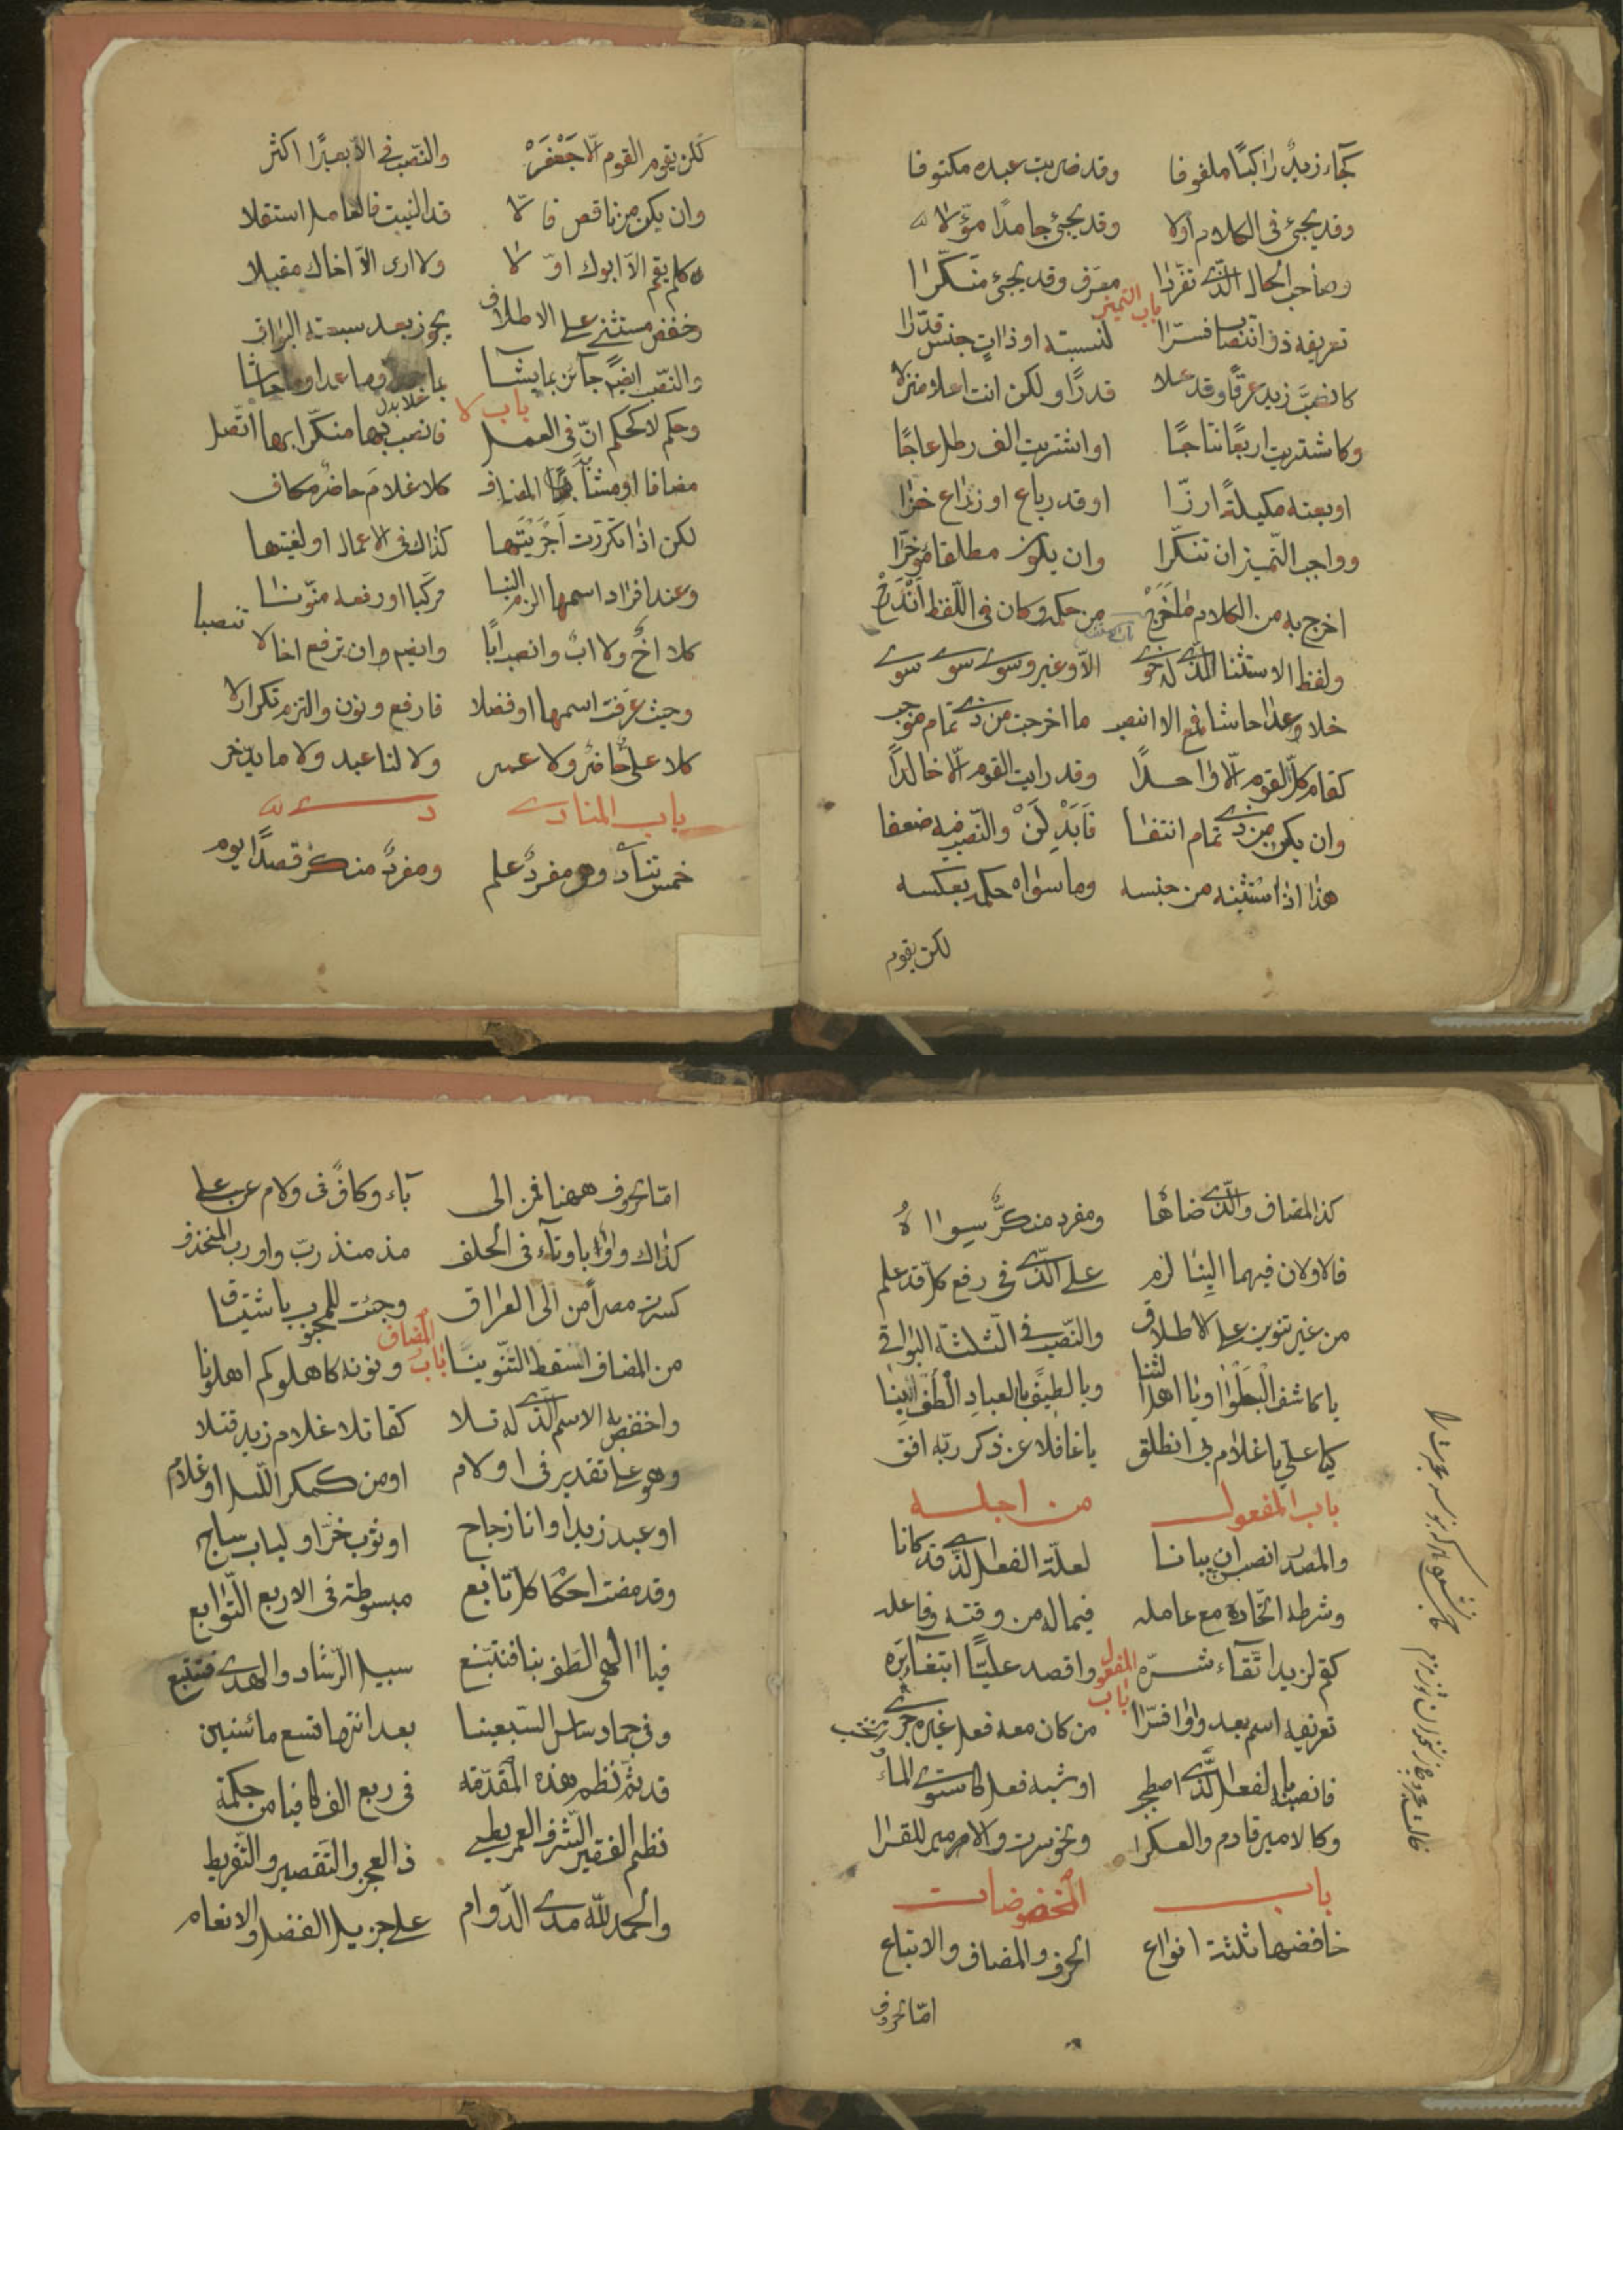 كجاء زيدٌ راكبًا ملفوفا وقد ضربت عبده مكتوفا
وقد يجئ في الكلام اولا وقد يجئ جامدًا مؤلا
وصاحب الحال الذي تقررا معرف وقد يجئ منكرا
باب التميز
تعريفه ذو انتصاب فسرا لنسبته او ذات جنس قدّرا
كانصبّ زيد عرقًا وقد علا قدرًا ولكن انت اعلا منزلا
وكاشتريت اربعًا نتاجًا او اشتريت الف رطل عاجًا
او بعته مكيلةً ارزّا او قدر باع او زراع خزا
وواجب التّميز ان تنكّرا وان يكون مطلقا مؤخرّا
اخرج به من الكلام ما خرج من حكمه وكان في اللفظ اندرج
ولفظ الاستثنا الذي له حوى الاّ وغير وسوى سوى سوى
خلا وعدا حاشا فمع الا انصب ما اخرجت من ذى تمام موجب
كقام كل القوم الّا واحدًا وقد رايت القوم الّا خالدًا
وان يكن من ذى تمام انتفا فَابْدِلَنْ والنّصب فيه ضعفا
هذا اذا استثنيته من جنسه وما سواه حكمه بعكسه
لكن يقوم
كلن يقوم القوم الّا جَعْفَرْ والنّصب في الاّ بعيرًا اكثر
وان يكن من ناقص فالّا قد الغيت فالعامل استقلا
كلم يقم الاّ ابوك اوّلا ولا ارى الاّ اخاك مقبلا
وخفض مستثنى على الاطلاق يجوز بعد سبعته البواق
والنّصب ايضًا جآئز بما يشا بما خلا وما عدا وما حاشا
باب لا
وحكم لا كحكم انّ في العمل فانصب بها منكّرا بها اتّصل
مضافا او مشابه المضاف كلا غلامَ حاضرٌ مكاف
لكن اذا تكرّرت اجريتها كذاك في الاعمال او لغيتها
وعند افراد اسمها الزم البنا مركبا او رفعه منوّنا
كلا اخٌ ولا ابٌ وانصب ابًا وايضًا وان ترفع اخا لا تنصبا
وحيث عرّفت اسمها او فصلا فارفع ونون والتزم تكرار لا
كلا علىٌّ حاضرٌ ولا عمر ولا لنا عبد ولا ما يدّخر
باب المنادى
خمس تنآدى وهو مفردٌ علم ومفردٌ منكر قصدًا يوم
كذا المضاف والّذى ضاهاهُ ومفرد منكرٌ سواهُ
فالاولان فيهما البنا لزم على الّذى في رفع كل قد علم
من غير تنوين على الاطلاق والنّصب في الثلثة البواقي
يا كاشف البلوا ويا اهل الثنا ويا لطيفٌ بالعباد الطف بنا
كيا علي يا غلام بي انطلق يا غافلا عن ذكر ربّه افق
باب المفعول من اجله
والمصدر انصب ان بيانا لعلّة الفعل الذى قد كانا
وشرطه اتّحاده مع عامله فيما له من وقته وفاعله
كقم لزيد اتّقاء شرّه واقصد عليّا ابتغآء برّه
باب المفعول
تعريفه اسم بعد واو فسّرا من كان معه فعل غيره جرى
فانصبه بالفعل الّذى اصطحب او شبه فعل كاستوى الماءُ
وكالامير قادم والعسكرا ونحو سرت والامير للقرا
باب المخفوضات
خافضها ثلثة انواع الحرف والمضاف والاتباع
امّا الحروف
امّا الحروف ههنا فمن الى بآء وكافٌ فى ولام عن على
كذاك واو با وتآء في الحلف مذ منذ ربّ واو ربّ المنحذف
كسرت من مصر الى العراق وجئت للمحبوب باشتياق
باب المضاف
من المضاف اسقط التّنوينا ونونه كاهلوكم اهلونا
واخفض به الاسم الّذى له تلا كقاتلا غلام زيد قتلا
وهو على تقدير في او لام او من كمكر اللّيل او غلام
او عبد زيد او انا زجاج او ثوب خزّ او كباب ساج
وقد مضت احكام كل تابع مبسوطة في الاربع التّوابع
فيا الهي الطف بنا فنتبع سبيل الرّشاد والهدى فنتبع
وفي جماد سادس السّبعينا بعد انتها تسع مائتين
قد تم نظم هذه المقدّمه في ربع الف كافيا من حكمه
نظم الفقير الشّرف العمريطى ذى العجز والتّقصير والتّفريط
والحمد للّه مدى الدّوام على جزيل الفضل والانعام